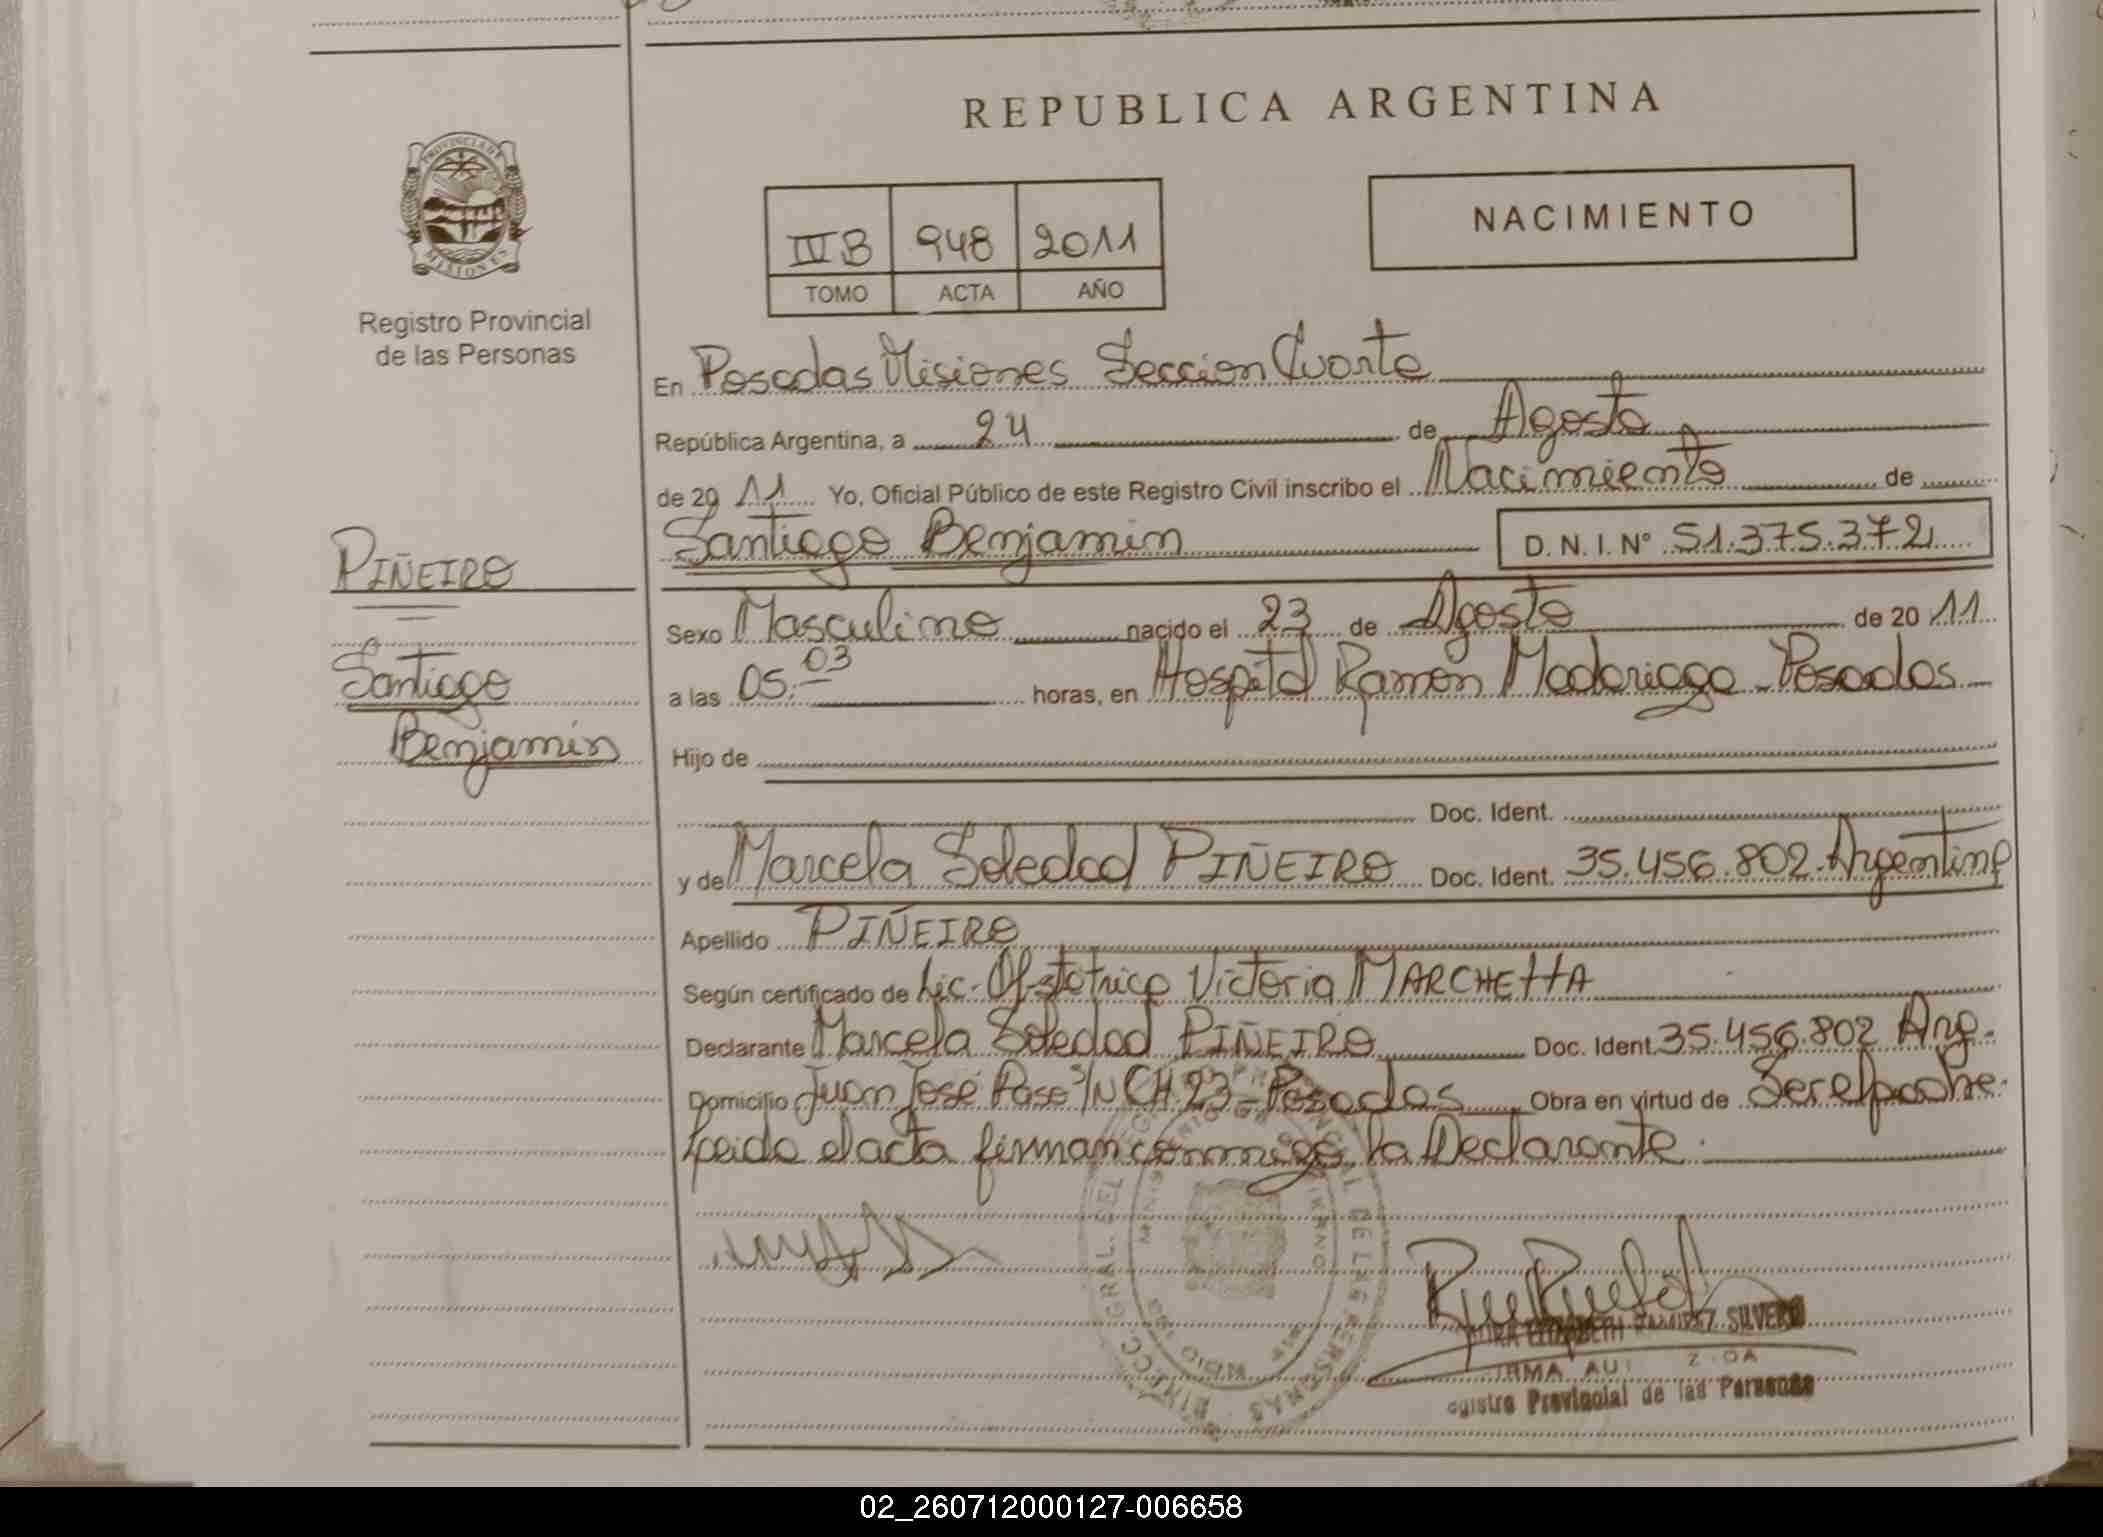 REPUBLICA ARGENTINA
PROVINCIA DE
MISIONES
Registro Provincial
de las Personas
NACIMIENTO
III B 948 2011
TOMO ACTA AÑO
En Posadas Misiones Seccion Cuarta
República Argentina, a 24 de Agosto
de 2011 Yo, Oficial Público de este Registro Civil inscribo el Nacimiento de
Santiago Benjamin D. N. I. Nº 51.375.372
PIÑEIRO
Santiago
Benjamin
Sexo Masculino nacido el 23 de Agosto de 2011
a las 05:03 horas, en Hospital Ramon Madariaga - Posadas
Hijo de
Doc. Ident.
y de Marcela Soledad PIÑEIRO Doc. Ident. 35.456.802. Argentina
Apellido PIÑEIRO
Según certificado de Lic. Obstetrica Victoria MARCHETTA
Declarante Marcela Soledad PIÑEIRO Doc. Ident. 35.456.802 Arg.
Domicilio Juan José Paso S/N CH 23 - Posadas Obra en virtud de Ser el padre.
Leida el acta firman conmigo la Declarante.
RAMIREZ SILVERO
Provincial de las Personas
02_260712000127-006658